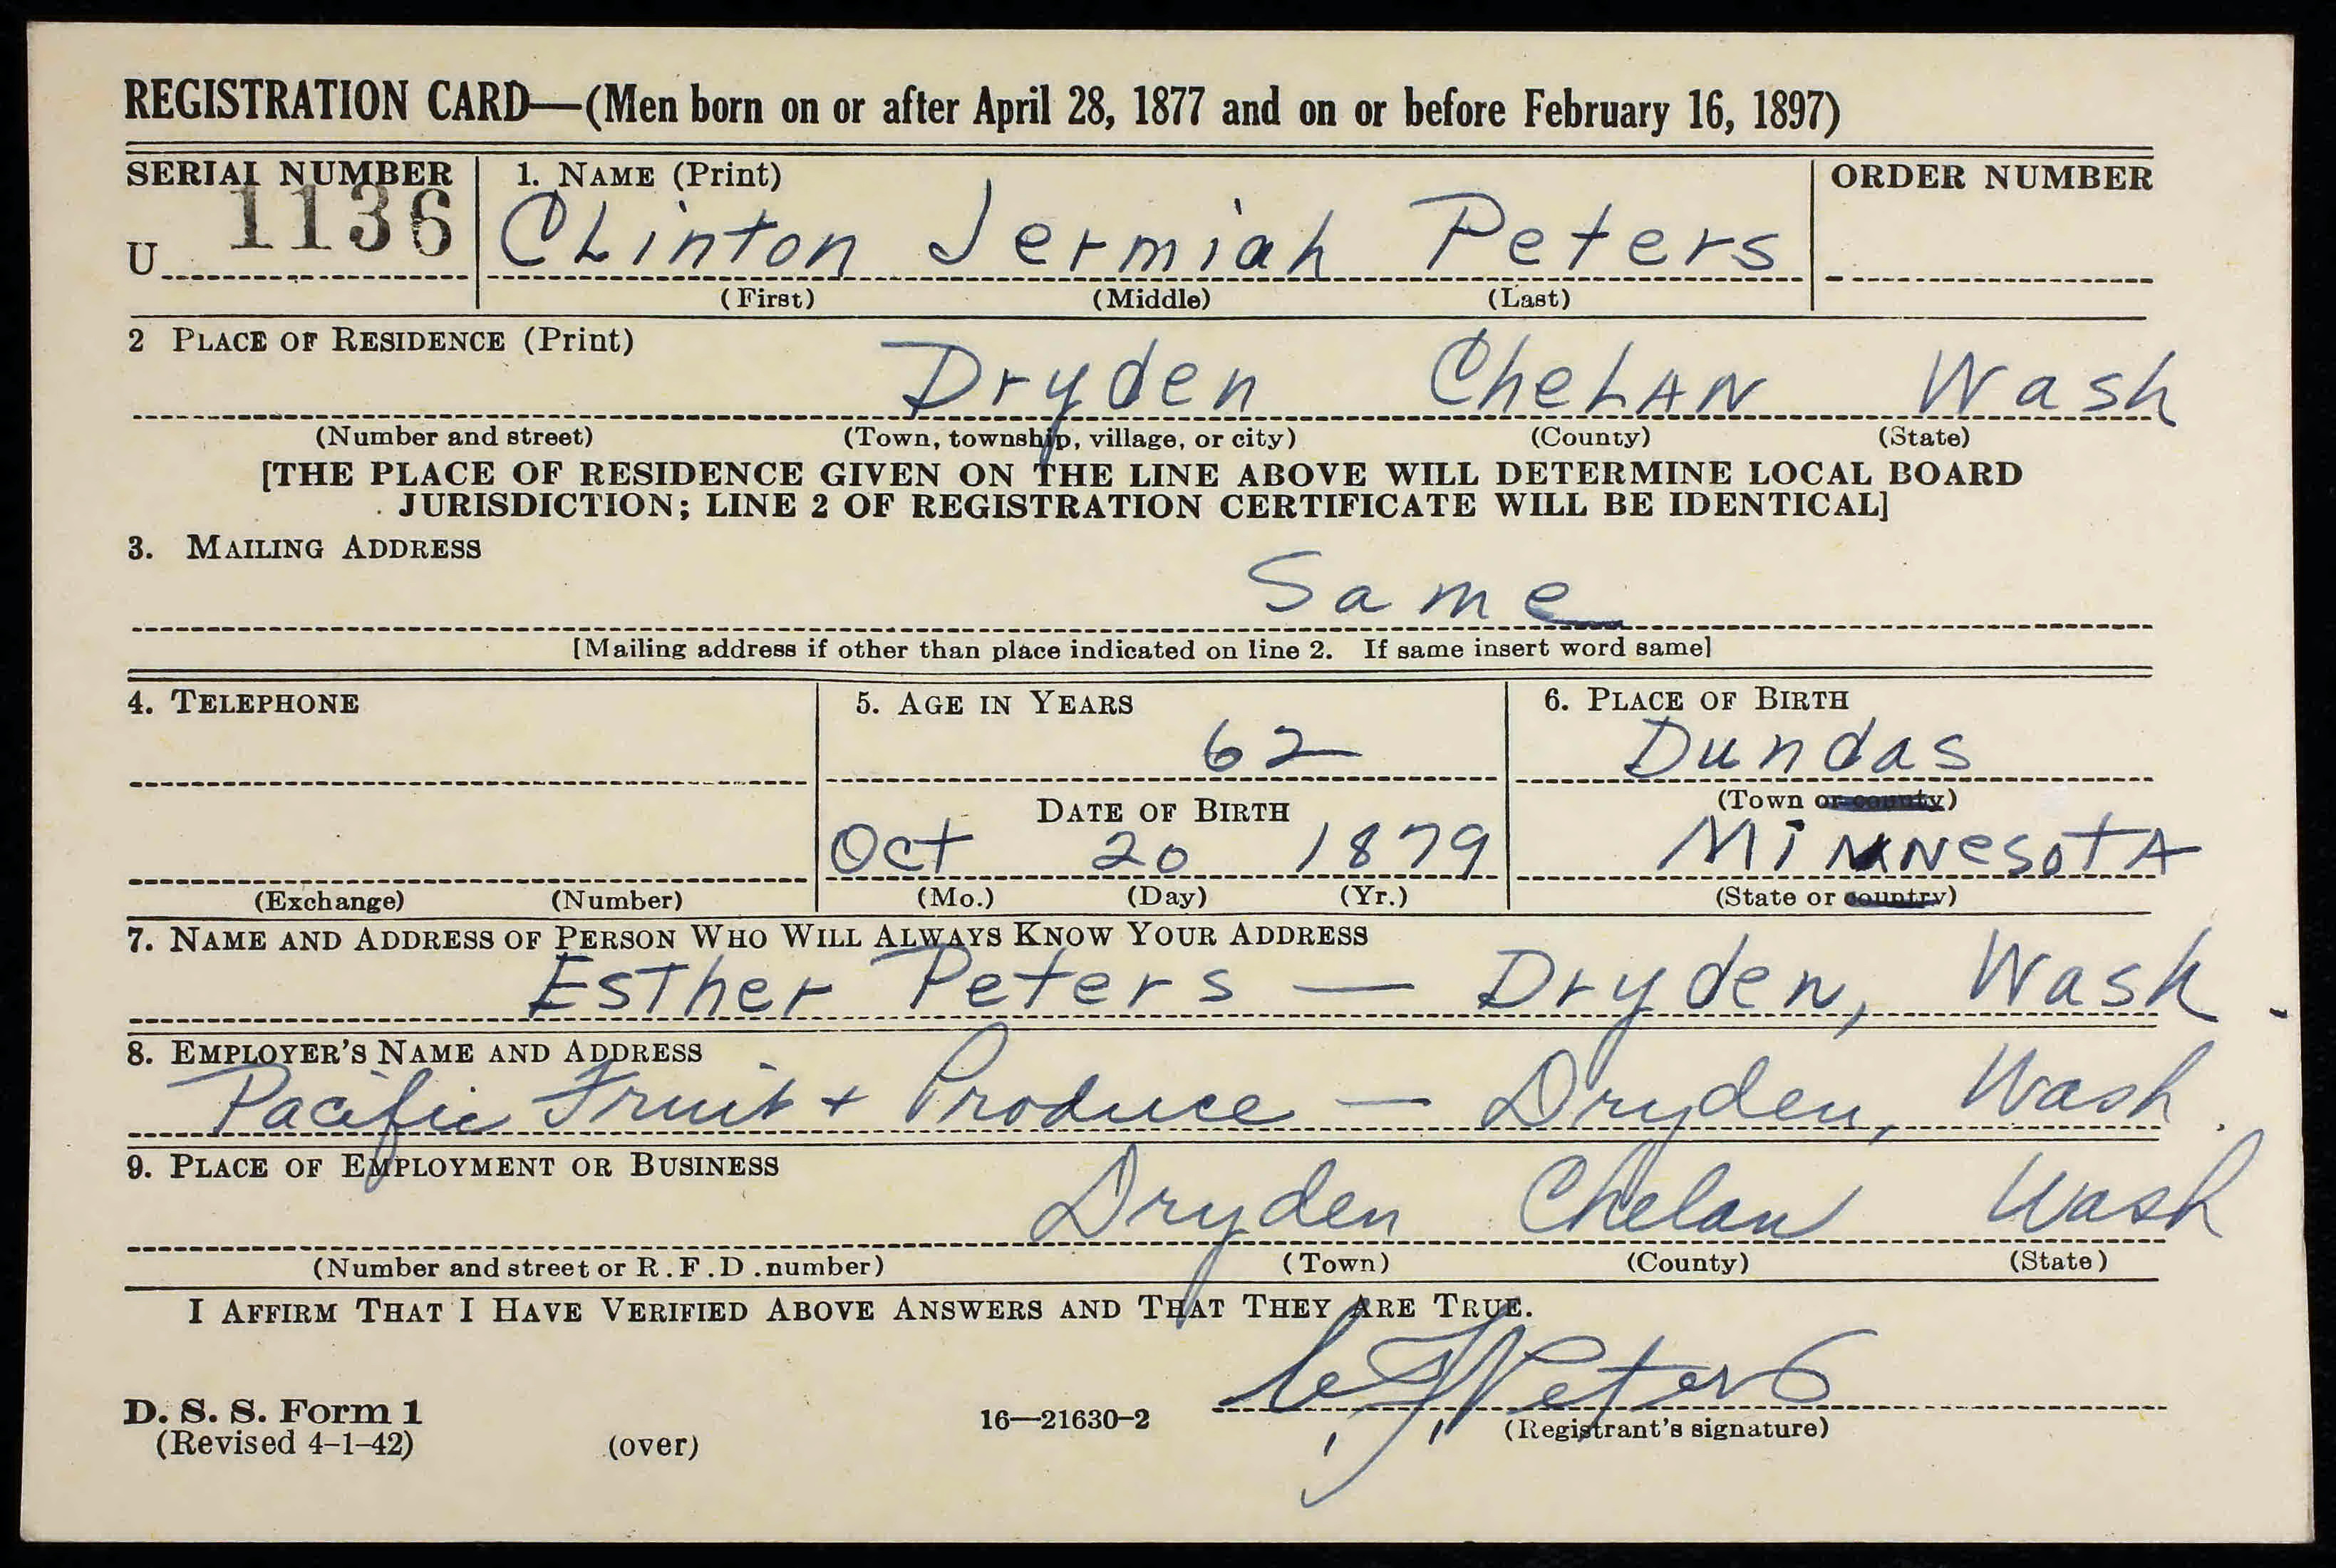 REGISTRATION CARD—(Men born on or after April 28, 1877 and on or before February 16, 1897)
SERIAL NUMBER 1. NAME (Print) ORDER NUMBER
U 1136 Clinton Jermiah Peters
(First) (Middle) (Last)
2 PLACE OF RESIDENCE (Print)
Dryden Chelan Wash
(Number and street) (Town, township, village, or city) (County) (State)
[THE PLACE OF RESIDENCE GIVEN ON THE LINE ABOVE WILL DETERMINE LOCAL BOARD
JURISDICTION; LINE 2 OF REGISTRATION CERTIFICATE WILL BE IDENTICAL]
3. MAILING ADDRESS
Same
[Mailing address if other than place indicated on line 2. If same insert word same]
4. TELEPHONE 5. AGE IN YEARS 6. PLACE OF BIRTH
62 Dundas
DATE OF BIRTH (Town or county)
Oct 20 1879 Minnesota
(Exchange) (Number) (Mo.) (Day) (Yr.) (State or country)
7. NAME AND ADDRESS OF PERSON WHO WILL ALWAYS KNOW YOUR ADDRESS
Esther Peters — Dryden, Wash.
8. EMPLOYER'S NAME AND ADDRESS
Pacific Fruit + Produce — Dryden, Wash.
9. PLACE OF EMPLOYMENT OR BUSINESS
Dryden Chelan Wash
(Number and street or R.F.D. number) (Town) (County) (State)
I AFFIRM THAT I HAVE VERIFIED ABOVE ANSWERS AND THAT THEY ARE TRUE.
C. J. Peters
D. S. S. Form 1
(Revised 4-1-42) (over) 16—21630-2 (Registrant's signature)